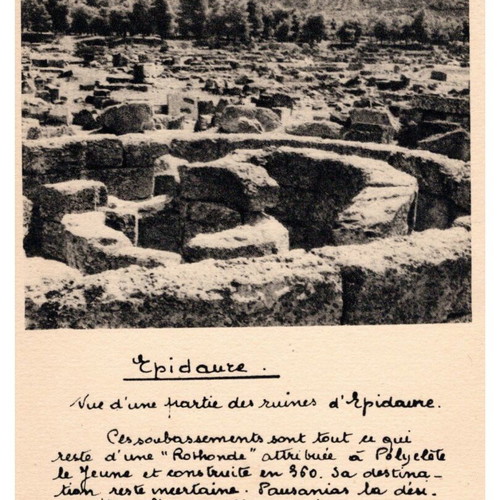 Epidaure.
Vue d'une partie des ruines d'Epidaure.
Ces soubassements sont tout ce qui
reste d'une "Rothonde" attribuée à Polyclète
le Jeune et construite en 360. Sa destina-
tion reste incertaine. Pausanias la dési-